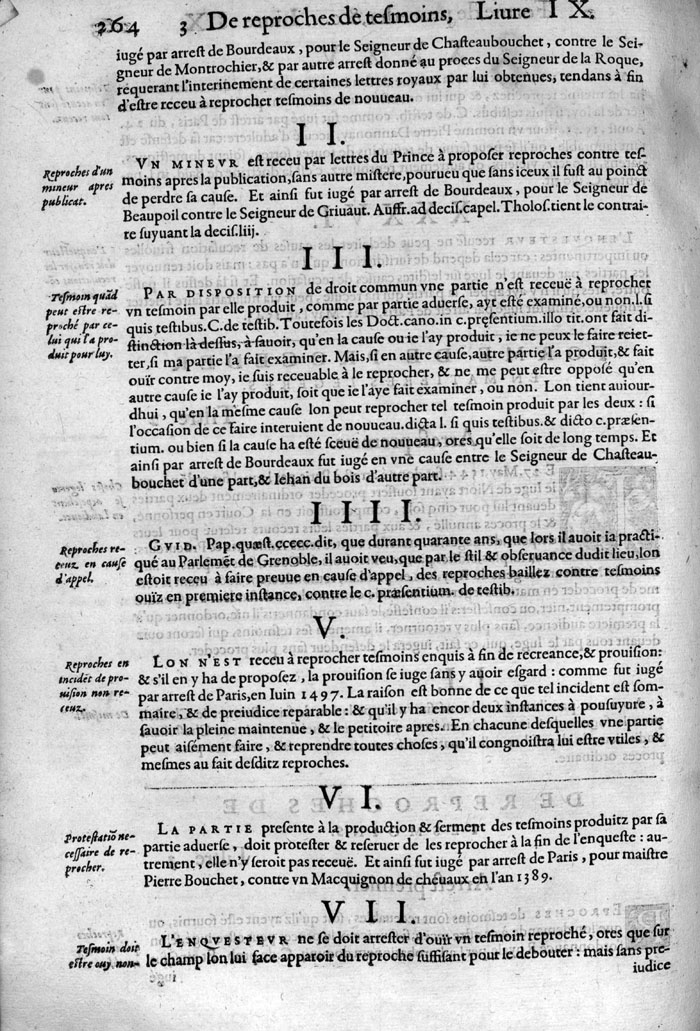 264 3 De reproches de tesmoins, Liure IX.
iugé par arrest de Bourdeaux, pour le Seigneur de Chasteaubouchet, contre le Sei-
gneur de Montrochier, & par autre arrest donné au proces du Seigneur de la Roque,
requerant l'interinement de certaines lettres royaux par lui obtenues, tendans à fin
d'estre receu à reprocher tesmoins de nouueau.
II.
Reproches d'un
mineur apres
publicat.
VN MINEVR est receu par lettres du Prince à proposer reproches contre tes-
moins apres la publication, sans autre mistere, pourueu que sans iceux il fust au poinct
de perdre sa cause. Et ainsi fut iugé par arrest de Bourdeaux, pour le Seigneur de
Beaupoil contre le Seigneur de Griuaut. Auffr. ad decis. capel. Tholos. tient le contrai-
re suyuant la decis. liij.
III.
Tesmoin quãd
peut estre re-
proché par ce-
lui qui l'a pro-
duit pour luy.
PAR DISPOSITION de droit commun vne partie n'est receuë à reprocher
vn tesmoin par elle produit, comme par partie aduerse, ayt esté examiné, ou non. l. si
quis testibus. C. de testib. Toutesfois les Doct. cano. in c. præsentium. illo tit. ont fait di-
stinction là dessus, à sauoir, qu'en la cause ou ie l'ay produit, ie ne peux le faire reiet-
ter, si ma partie l'a fait examiner. Mais, si en autre cause, autre partie l'a produit, & fait
ouïr contre moy, ie suis receuable à le reprocher, & ne me peut estre opposé qu'en
autre cause ie l'ay produit, soit que ie l'aye fait examiner, ou non. Lon tient auiour-
dhui, qu'en la mesme cause lon peut reprocher tel tesmoin produit par les deux: si
l'occasion de ce faire interuient de nouueau. dicta l. si quis testibus. & dicto c. præsen-
tium. ou bien si la cause ha esté sceuë de nouueau, ores qu'elle soit de long temps. Et
ainsi par arrest de Bourdeaux fut iugé en vne cause entre le Seigneur de Chasteau-
bouchet d'une part, & Iehan du bois d'autre part.
IIII.
Reproches re-
ceuz en cause
d'appel.
GVID. Pap. quæst. ccccc. dit, que durant quarante ans, que lors il auoit ia practi-
qué au Parlemẽt de Grenoble, il auoit veu, que par le stil & obseruance dudit lieu, lon
estoit receu à faire preuue en cause d'appel, des reproches baillez contre tesmoins
ouïz en premiere instance, contre le c. præsentium. de testib.
V.
Reproches en
incidẽt de pro-
uision non re-
ceuz.
LON N'EST receu à reprocher tesmoins enquis à fin de recreance, & prouision:
& s'il en y ha de proposez, la prouision se iuge sans y auoir esgard: comme fut iugé
par arrest de Paris, en Iuin 1497. La raison est bonne de ce que tel incident est som-
maire, & de preiudice reparable: & qu'il y ha encor deux instances à pousuyure, à
sauoir la pleine maintenue, & le petitoire apres. En chacune desquelles vne partie
peut aisément faire, & reprendre toutes choses, qu'il congnoistra lui estre vtiles, &
mesmes au fait desditz reproches.
VI.
Protestatiõ ne-
cessaire de re-
procher.
LA PARTIE presente à la production & serment des tesmoins produitz par sa
partie aduerse, doit protester & reseruer de les reprocher à la fin de l'enqueste: au-
trement, elle n'y seroit pas receuë. Et ainsi fut iugé par arrest de Paris, pour maistre
Pierre Bouchet, contre vn Macquignon de cheuaux en l'an 1389.
VII.
Tesmoin doit
estre ouy, non-
L'ENQVESTEVR ne se doit arrester d'ouïr vn tesmoin reproché, ores que sur
le champ lon lui face apparoir du reproche suffisant pour le debouter: mais sans pre-
iudice